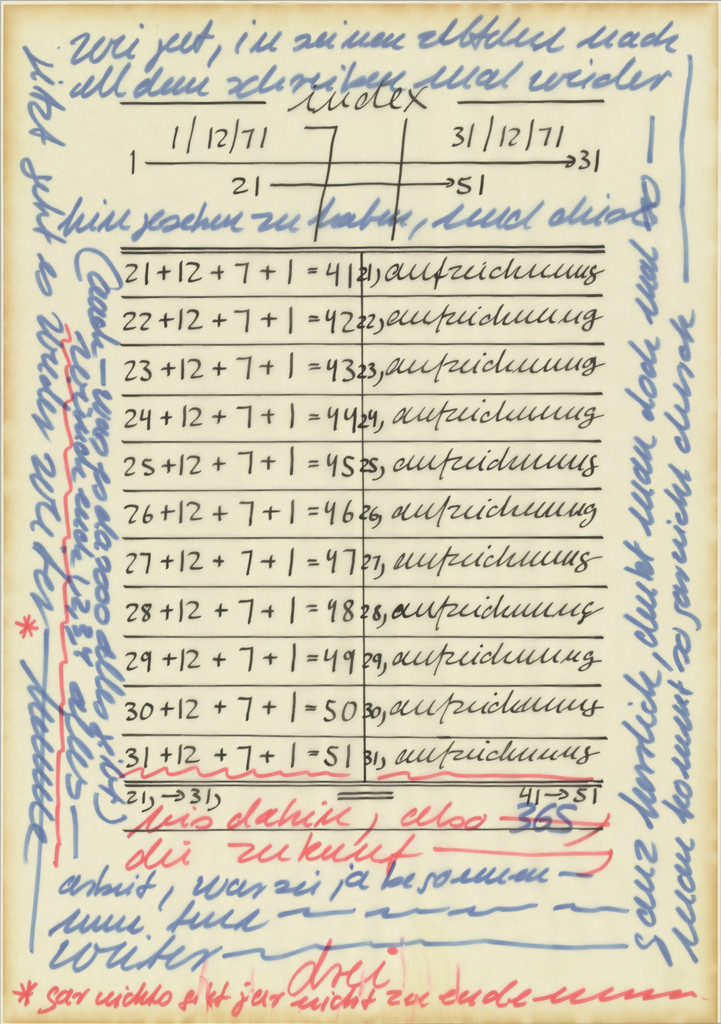 gut, in seinen nach
all dem schreiben mal wieder
index
1/12/71 31/12/71
1 → 31
21 → 51
hin gesehen zu haben, und
21+12+7+1=41 21, aufzeichnung
22+12+7+1=42 22, aufzeichnung
23+12+7+1=43 23, aufzeichnung
24+12+7+1=44 24, aufzeichnung
25+12+7+1=45 25, aufzeichnung
26+12+7+1=46 26, aufzeichnung
27+12+7+1=47 27, aufzeichnung
28+12+7+1=48 28, aufzeichnung
29+12+7+1=49 29, aufzeichnung
30+12+7+1=50 30, aufzeichnung
31+12+7+1=51 31, aufzeichnung
21, → 31, 41 → 51
bis dahin, also 365
die zukunft
arbeit, war sie ja begonnen
nun
weiter
drei
* gar nichts gibt gar nicht zu ende
jetzt geht es wieder weiter *
(auch – was da alles gibt)
ganz herrlich, denkt man doch mal so
man kommt so gar nicht durch